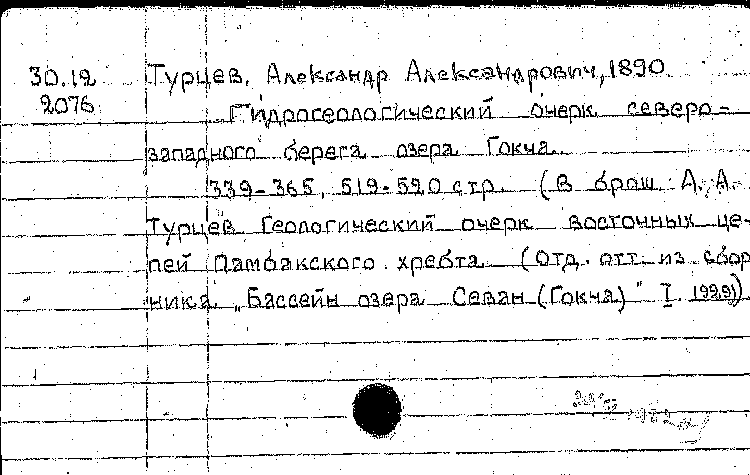 30.12 Турцев, Александр Александрович, 1890
2076 Гидрогеологический очерк северо=
западного берега озера Гокча.
339-365, 519-520 стр. (В брош. А. А.
Турцев Геологический очерк восточных це-
пей Памбакского хребта (Отд. отт. из сбор
ника „Бассейн озера Севан (Гокча)" I. 1929)